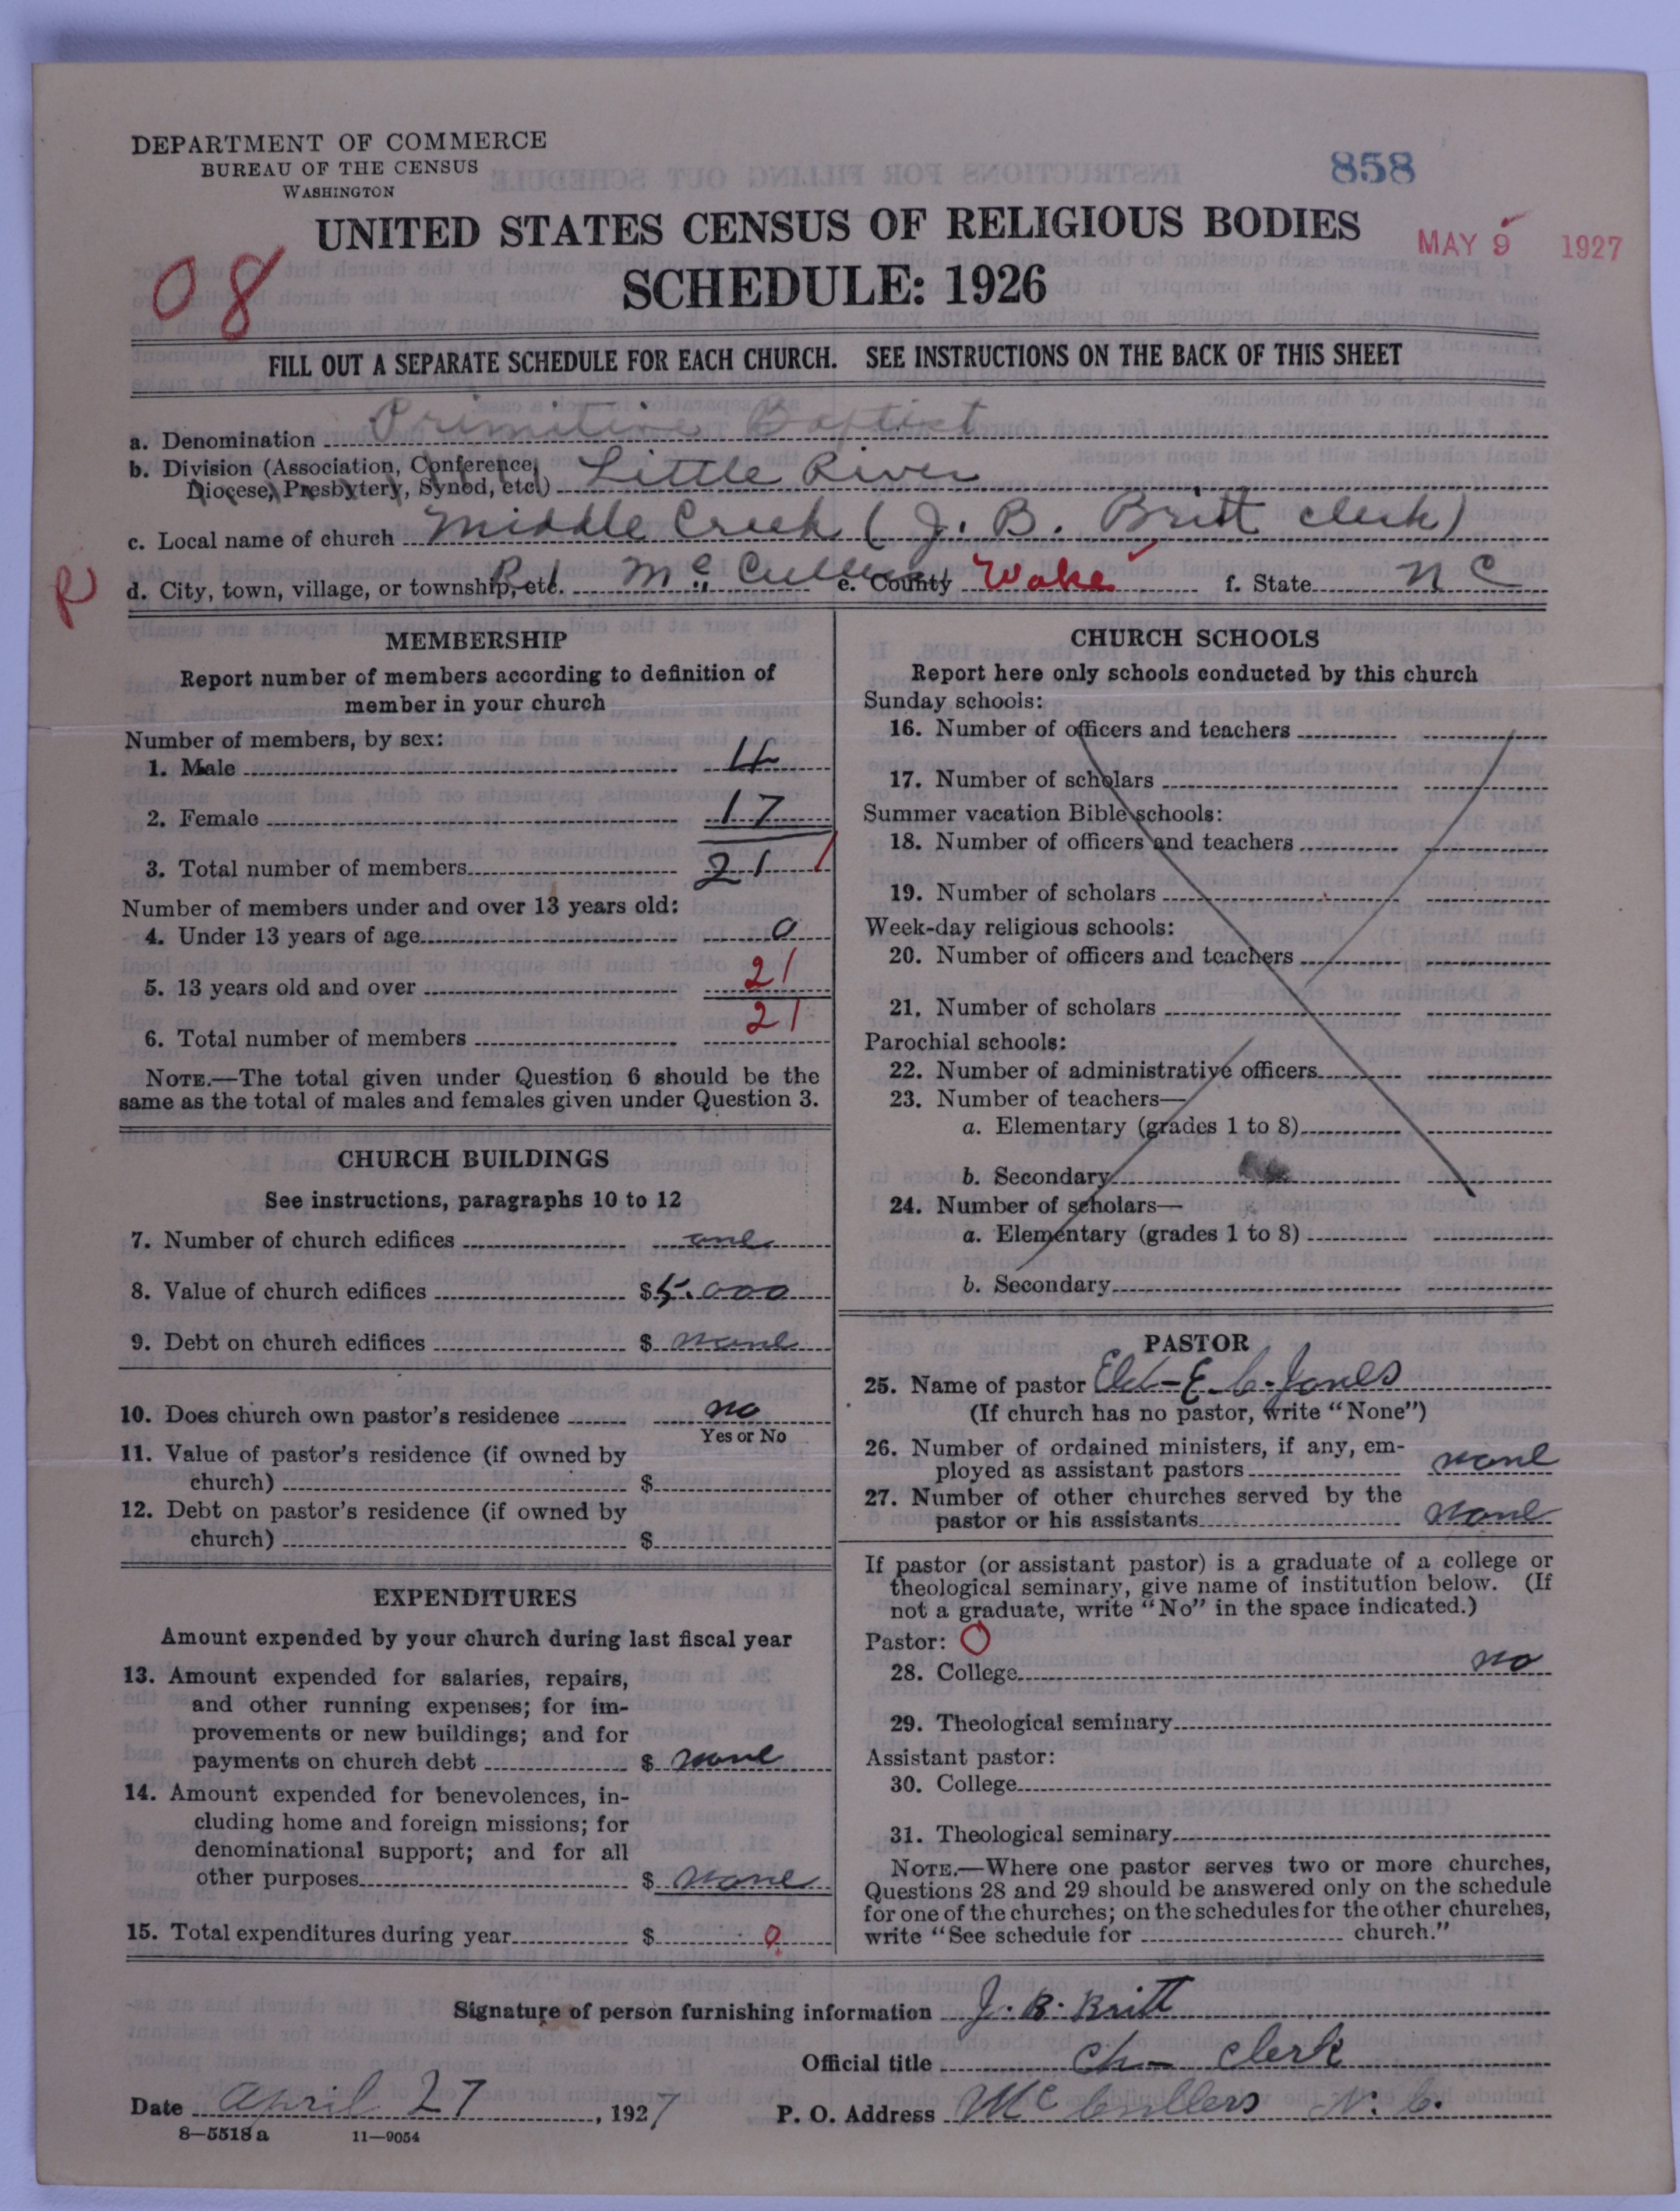 DEPARTMENT OF COMMERCE
BUREAU OF THE CENSUS
WASHINGTON
858
UNITED STATES CENSUS OF RELIGIOUS BODIES
MAY 9 1927
08
SCHEDULE: 1926
FILL OUT A SEPARATE SCHEDULE FOR EACH CHURCH. SEE INSTRUCTIONS ON THE BACK OF THIS SHEET
a. Denomination Primitive Baptist
b. Division (Association, Conference, Diocese, Presbytery, Synod, etc.) Little River
c. Local name of church Middle Creek (J. B. Britt clerk)
R d. City, town, village, or township, etc. R 1 McCullers e. County Wake f. State N C
MEMBERSHIP
Report number of members according to definition of
member in your church
Number of members, by sex:
1. Male 4
2. Female 17
3. Total number of members 21
Number of members under and over 13 years old:
4. Under 13 years of age 0
5. 13 years old and over 21
6. Total number of members 21
NOTE.—The total given under Question 6 should be the
same as the total of males and females given under Question 3.
CHURCH BUILDINGS
See instructions, paragraphs 10 to 12
7. Number of church edifices one
8. Value of church edifices $5.000
9. Debt on church edifices $ none
10. Does church own pastor's residence no
Yes or No
11. Value of pastor's residence (if owned by
church) $
12. Debt on pastor's residence (if owned by
church) $
EXPENDITURES
Amount expended by your church during last fiscal year
13. Amount expended for salaries, repairs,
and other running expenses; for im-
provements or new buildings; and for
payments on church debt $ none
14. Amount expended for benevolences, in-
cluding home and foreign missions; for
denominational support; and for all
other purposes $ none
15. Total expenditures during year $ 0
CHURCH SCHOOLS
Report here only schools conducted by this church
Sunday schools:
16. Number of officers and teachers
17. Number of scholars
Summer vacation Bible schools:
18. Number of officers and teachers
19. Number of scholars
Week-day religious schools:
20. Number of officers and teachers
21. Number of scholars
Parochial schools:
22. Number of administrative officers
23. Number of teachers—
a. Elementary (grades 1 to 8)
b. Secondary
24. Number of scholars—
a. Elementary (grades 1 to 8)
b. Secondary
PASTOR
25. Name of pastor Eld- E. C. Jones
(If church has no pastor, write "None")
26. Number of ordained ministers, if any, em-
ployed as assistant pastors none
27. Number of other churches served by the
pastor or his assistants none
If pastor (or assistant pastor) is a graduate of a college or
theological seminary, give name of institution below. (If
not a graduate, write "No" in the space indicated.)
Pastor: O
28. College no
29. Theological seminary
Assistant pastor:
30. College
31. Theological seminary
NOTE.—Where one pastor serves two or more churches,
Questions 28 and 29 should be answered only on the schedule
for one of the churches; on the schedules for the other churches,
write "See schedule for church."
Signature of person furnishing information J. B. Britt
Official title Ch- clerk
Date April 27, 1927 P. O. Address McCullers N. C.
8—5518a 11—9054